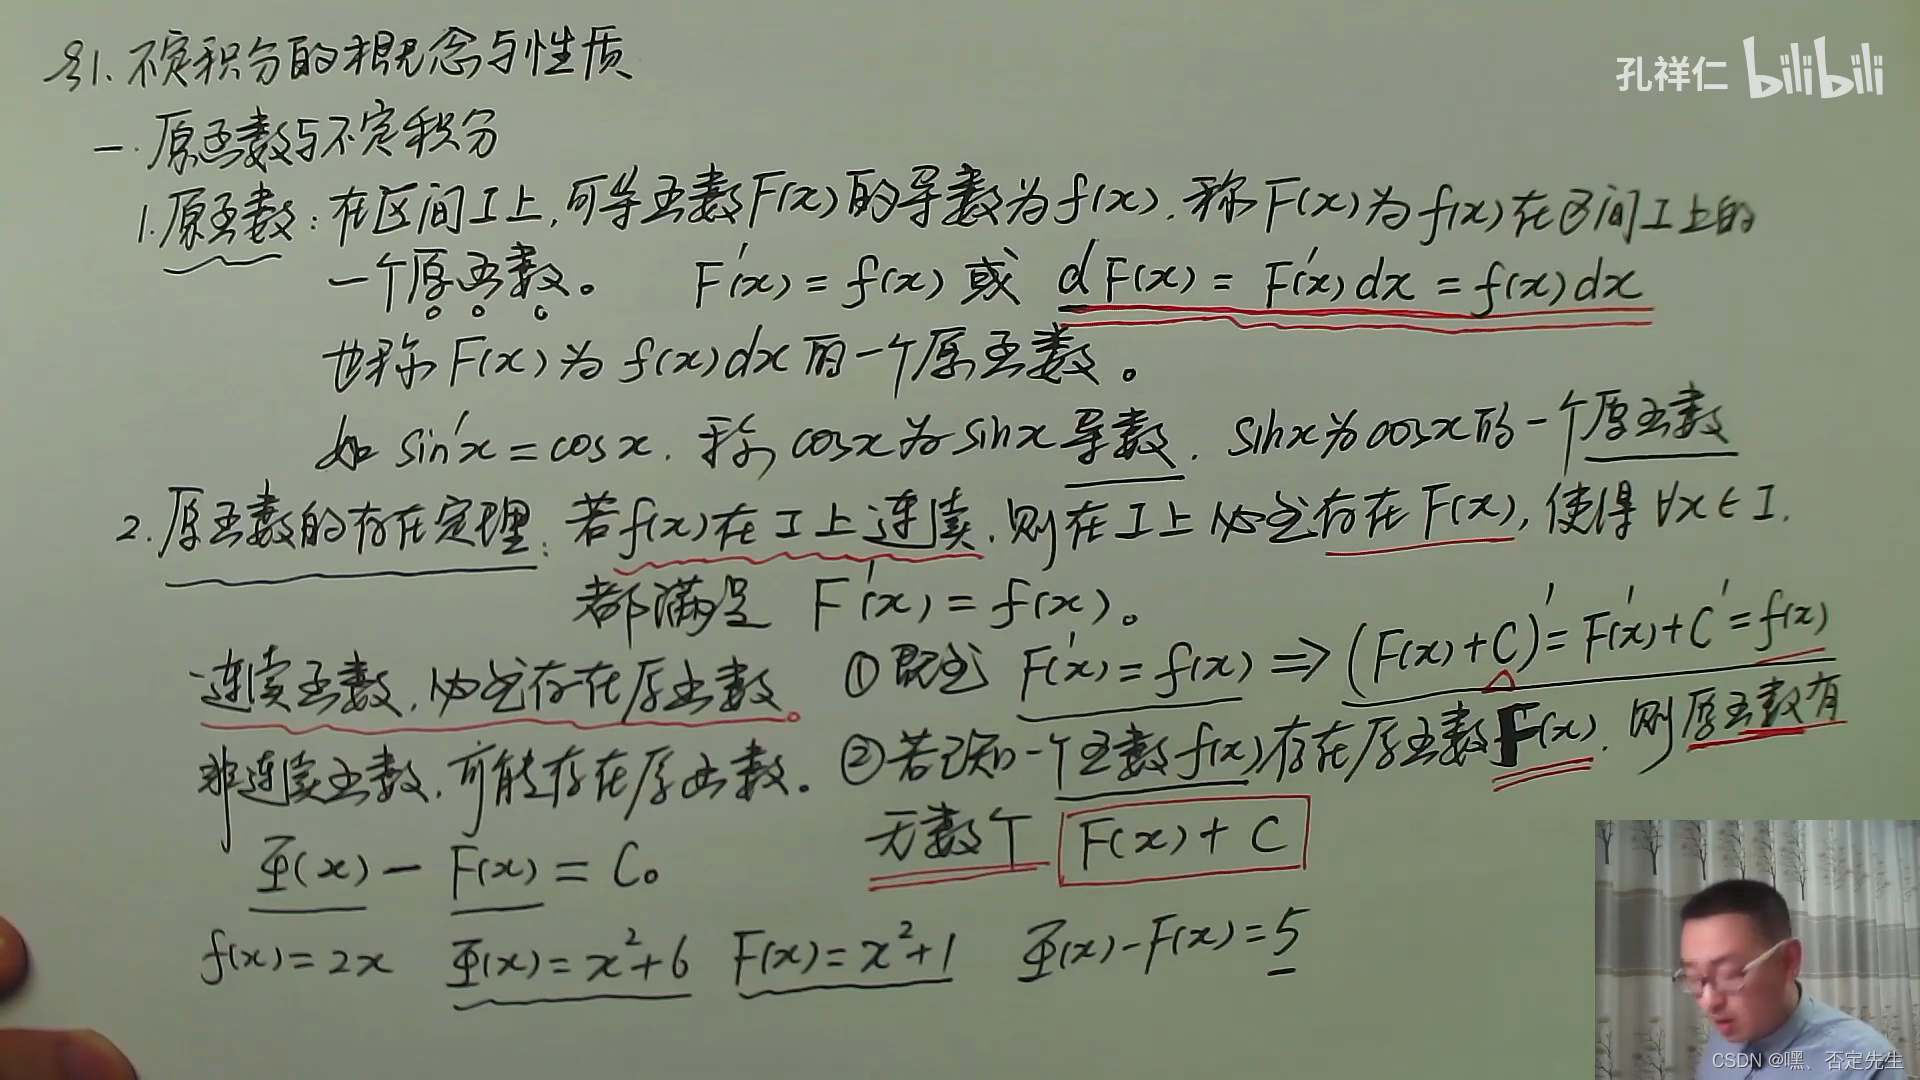 §1. 不定积分的概念与性质
孔祥仁 bilibili
一. 原函数与不定积分
1. 原函数: 在区间I上, 可导函数F(x)的导数为f(x), 称F(x)为f(x)在区间I上的
一个原函数。 F'(x) = f(x) 或 dF(x) = F'(x)dx = f(x)dx
也称F(x)为f(x)dx的一个原函数。
如 sin'x = cosx. 称cosx为sinx导数. sinx为cosx的一个原函数
2. 原函数的存在定理: 若f(x)在I上连续, 则在I上必定存在F(x), 使得 ∀x∈I.
都满足 F'(x) = f(x)。
连续函数, 必定存在原函数。
非连续函数, 可能存在原函数。
Φ(x) - F(x) = C₀
① 既定 F'(x) = f(x) ⇒ (F(x)+C)' = F'(x)+C' = f(x)
② 若已知一个函数f(x)存在原函数F(x). 则原函数有
无数个 F(x) + C
f(x) = 2x Φ(x) = x²+6 F(x) = x²+1 Φ(x) - F(x) = 5
CSDN @嘿、否定先生